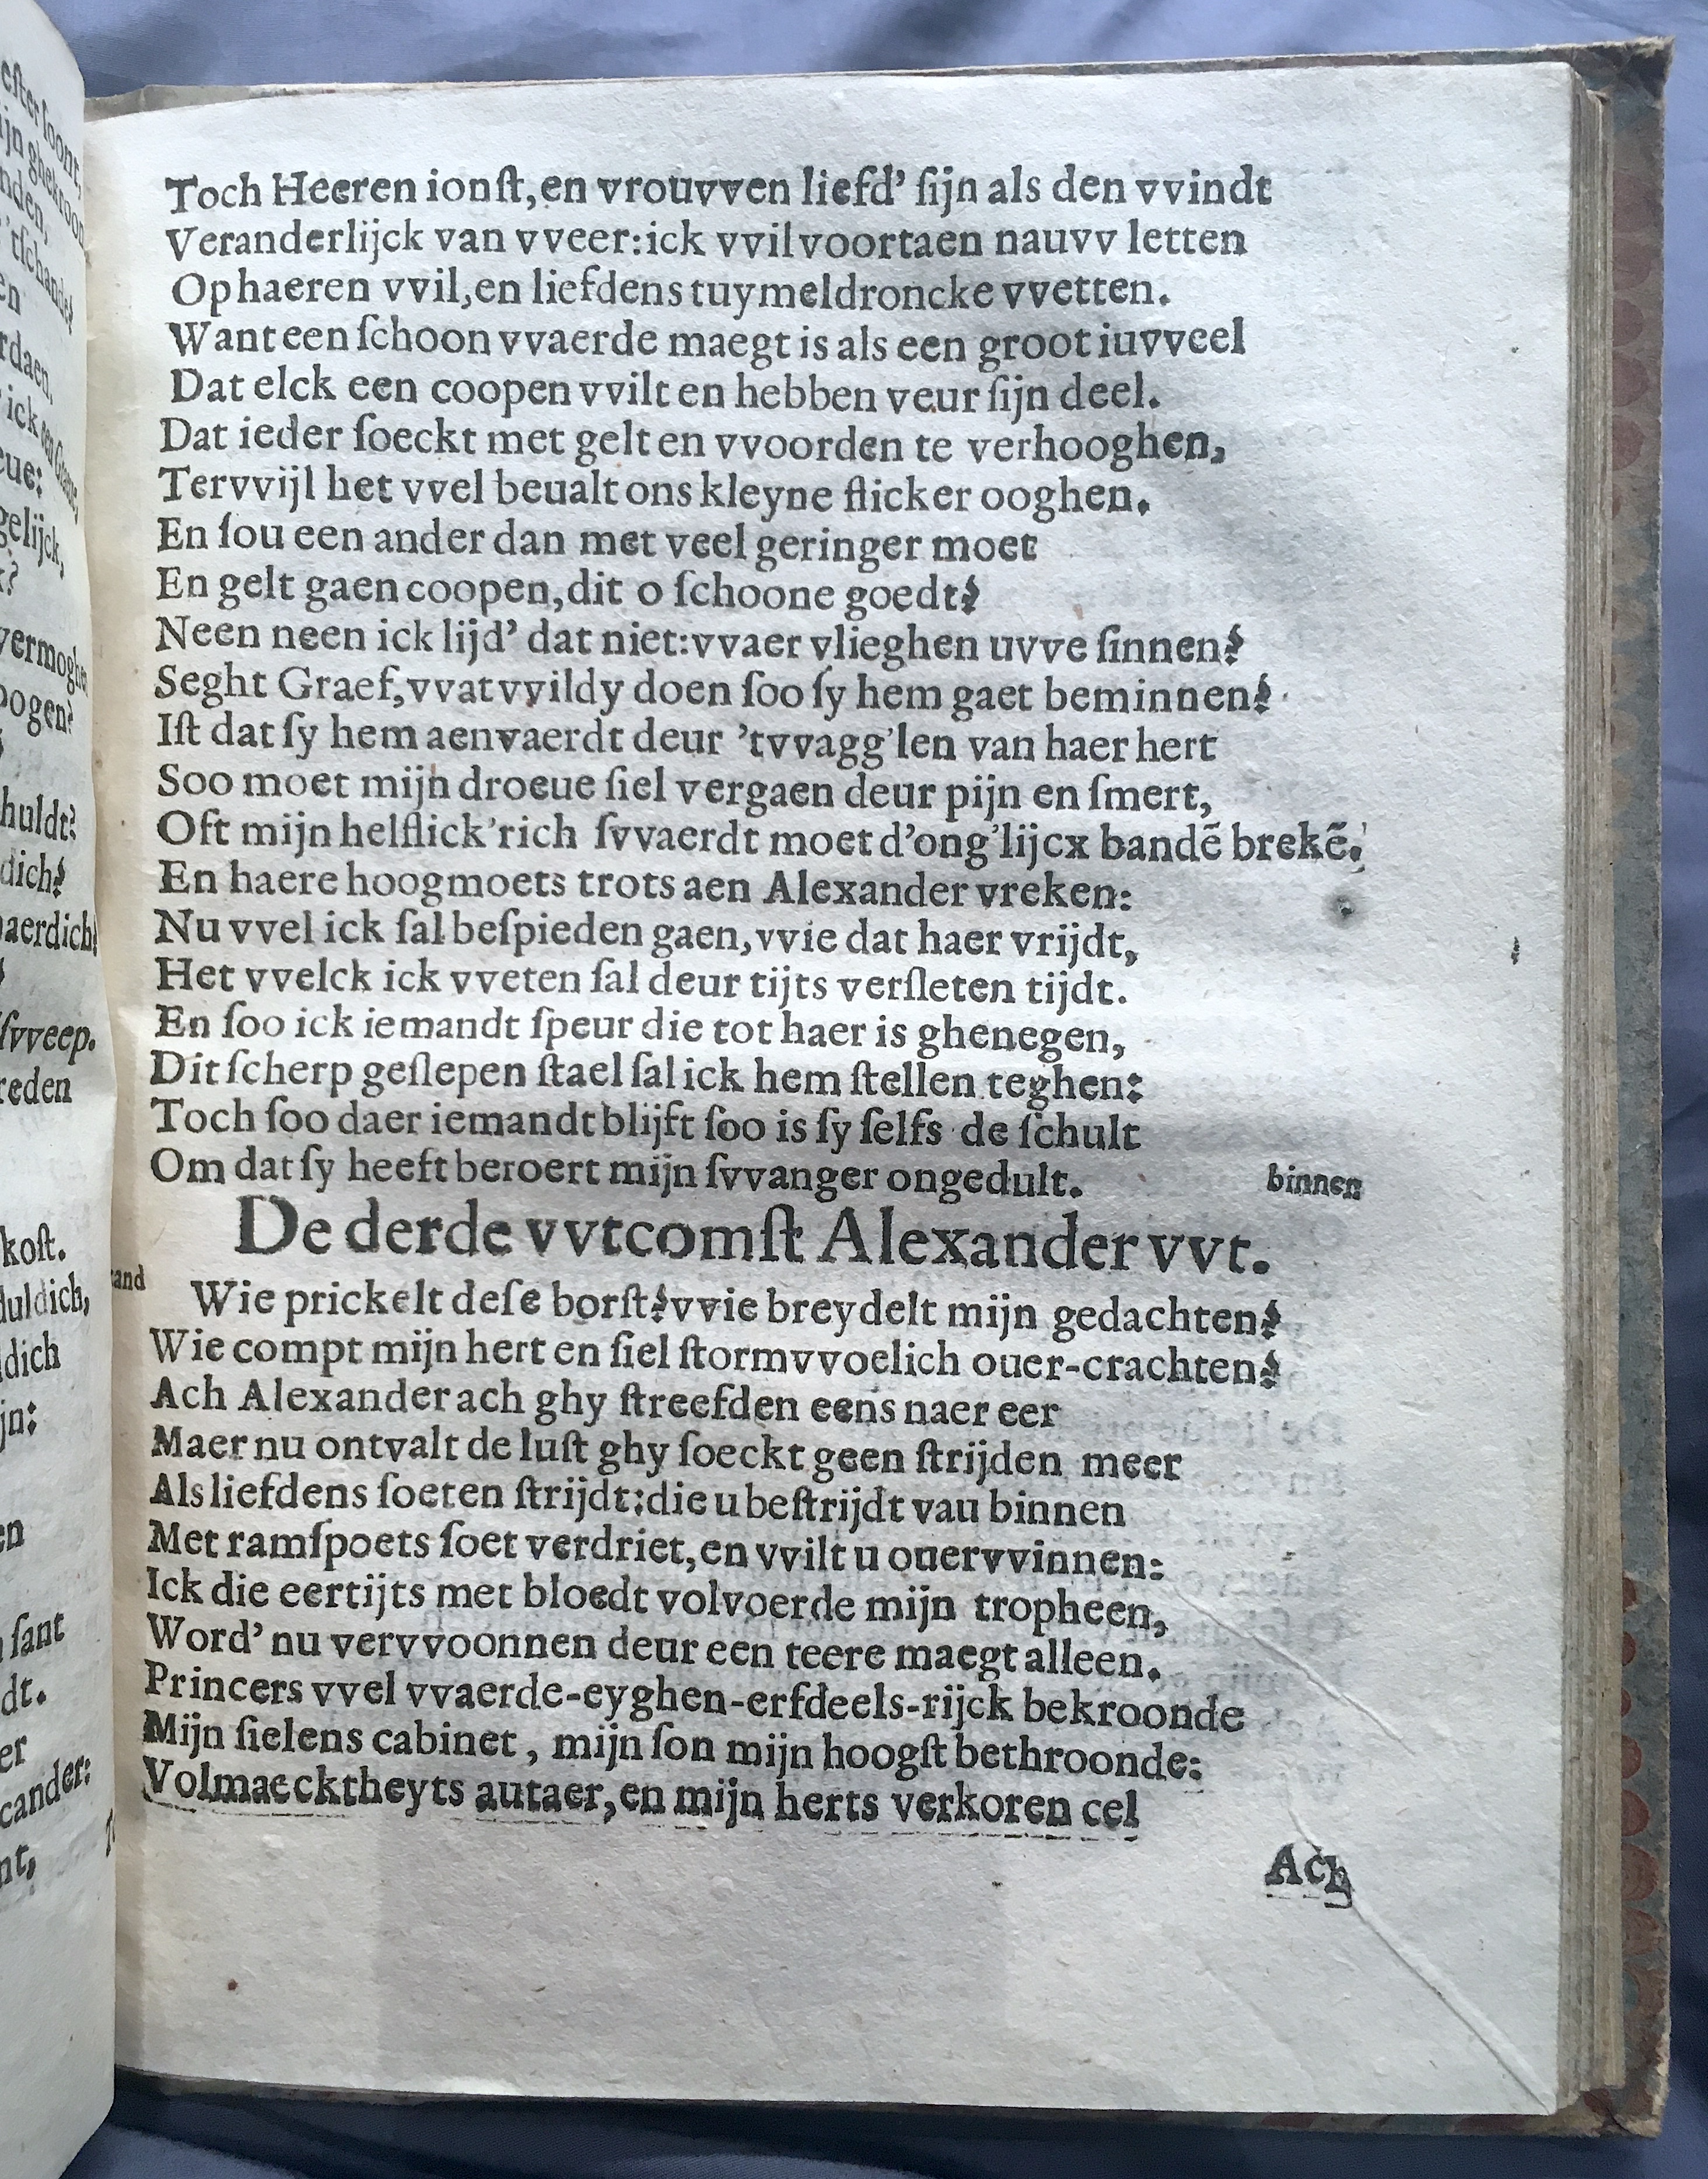 Toch Heeren ionſt, en vrouvven liefd' ſijn als den vvindt
Veranderlijck van vveer: ick vvil voortaen nauvv letten
Op haeren vvil, en liefdens tuymeldroncke vvetten.
Want een ſchoon vvaerde maegt is als een groot iuvveel
Dat elck een coopen vvilt en hebben veur ſijn deel.
Dat ieder ſoeckt met gelt en vvoorden te verhooghen,
Tervvijl het vvel beualt ons kleyne flicker ooghen.
En ſou een ander dan met veel geringer moet
En gelt gaen coopen, dit o ſchoone goedt?
Neen neen ick lijd' dat niet: vvaer vlieghen uvve ſinnen?
Seght Graef, vvat vvildy doen ſoo ſy hem gaet beminnen?
Iſt dat ſy hem aenvaerdt deur 'tvvagg'len van haer hert
Soo moet mijn droeue ſiel vergaen deur pijn en ſmert,
Oft mijn helflick'rich ſvvaerdt moet d'ong'lijcx bandẽ brekẽ.
En haere hoogmoets trots aen Alexander vreken:
Nu vvel ick ſal beſpieden gaen, vvie dat haer vrijdt,
Het vvelck ick vveten ſal deur tijts verſleten tijdt.
En ſoo ick iemandt ſpeur die tot haer is ghenegen,
Dit ſcherp geſlepen ſtael ſal ick hem ſtellen teghen:
Toch ſoo daer iemandt blijft ſoo is ſy ſelfs de ſchult
Om dat ſy heeft beroert mijn ſvvanger ongedult. binnen
De derde vvtcomſt Alexander vvt.
Wie prickelt deſe borſt? vvie breydelt mijn gedachten?
Wie compt mijn hert en ſiel ſtormvvoelich ouer-crachten?
Ach Alexander ach ghy ſtreefden eens naer eer
Maer nu ontvalt de luſt ghy ſoeckt geen ſtrijden meer
Als liefdens ſoeten ſtrijdt: die u beſtrijdt vau binnen
Met ramſpoets ſoet verdriet, en vvilt u ouervvinnen:
Ick die eertijts met bloedt volvoerde mijn tropheen,
Word' nu vervvoonnen deur een teere maegt alleen.
Princers vvel vvaerde-eyghen-erfdeels-rijck bekroonde
Mijn ſielens cabinet, mijn ſon mijn hoogſt bethroonde:
Volmaecktheyts autaer, en mijn herts verkoren cel
Ach